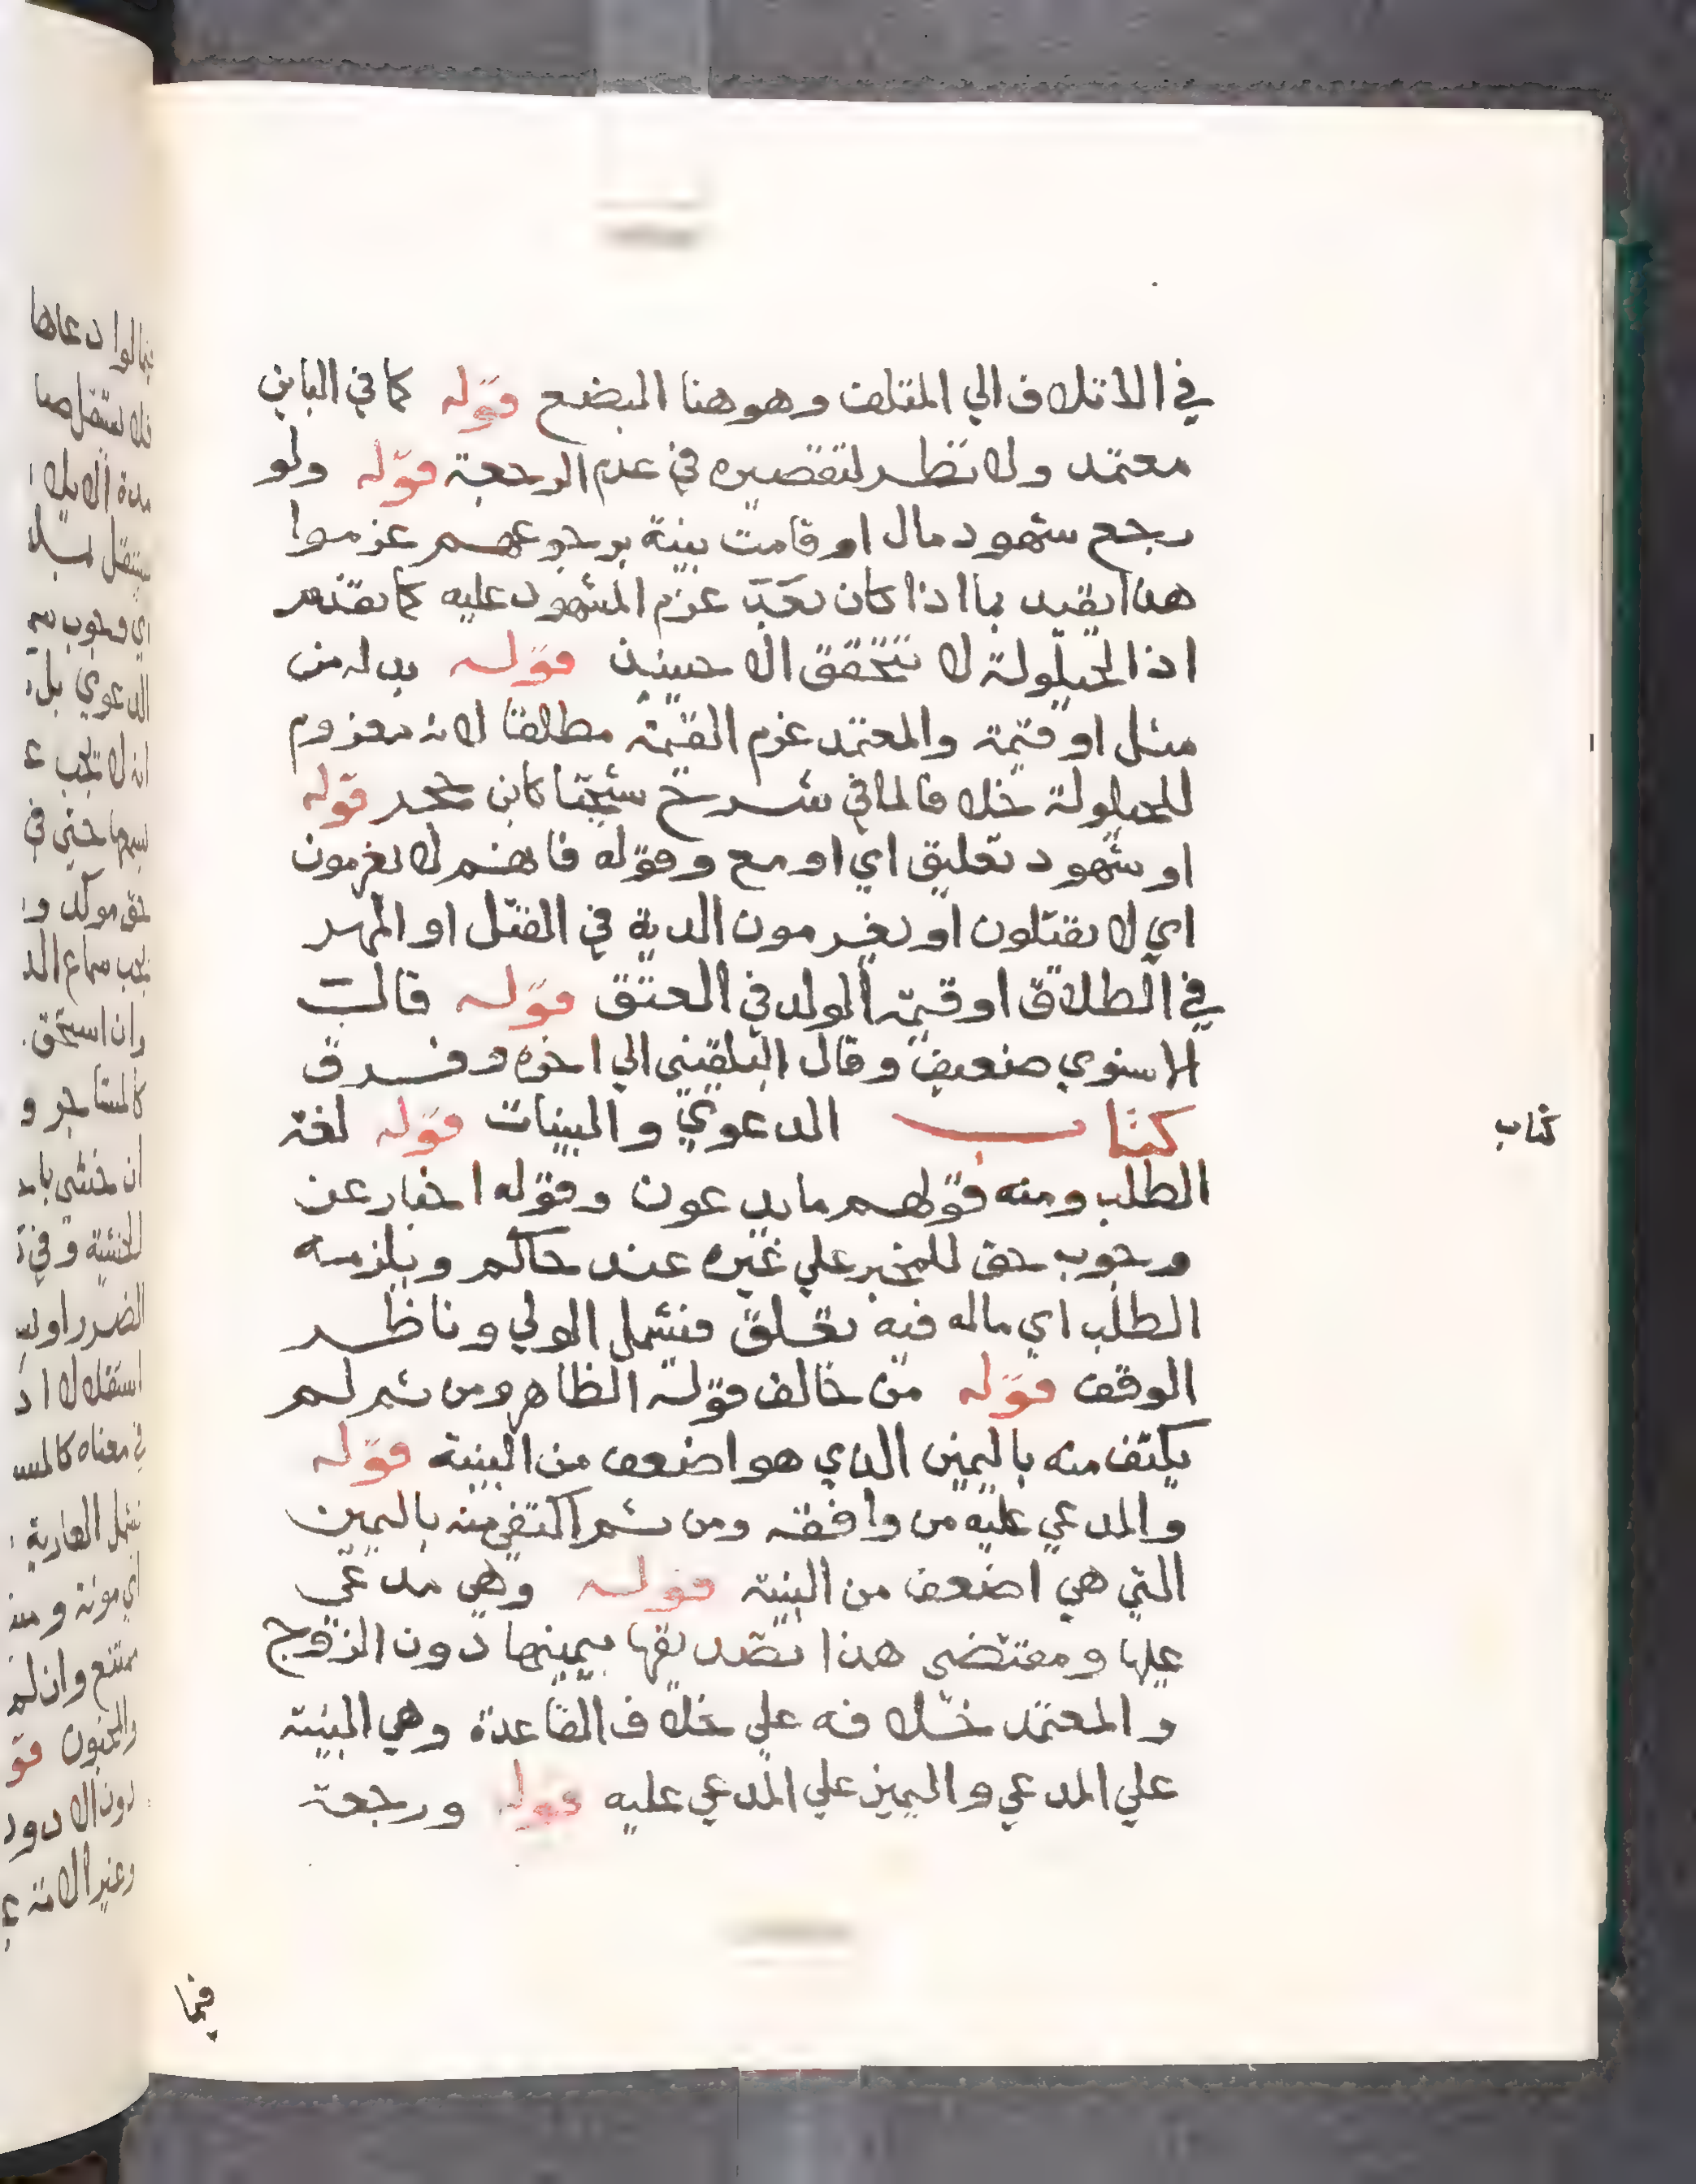 في الاتلاف الي المتلف وهو هنا البضع قوله كما في البابن
معتمد ولا نظر لتقصيره في عدم الرجعة قوله ولو
رجع شهود مال او قامت بينة برجوعهم غرموا
هذا يقيد بما اذا كان بعد غرم المشهود عليه كما تقدم
اذا الحيلولة لا تتحقق الا حينئذ قوله بدله من
مثل او قيمة والمعتمد غرم القيمة مطلقا لانه مغروم
للحيلولة خلافا لما في شرح شيخنا كابن حجر قوله
او شهود تعليق اي او مع وقوله فانهم لا يغرمون
اي لا يقتلون او يغرمون الدية في القتل او المهر
في الطلاق او قيمة الولد في العتق قوله قالت
الاسنوي ضعيف وقال البلقيني الي اخره وفرق
كتاب الدعوي والبينات قوله لغة
الطلب ومنه قولهم ما يدعون وقوله اخبار عن
وجوب حق للمخبر علي غيره عند حاكم ويلزمه
الطلب اي ماله فيه تعلق فشمل الولي وناظر
الوقف قوله من خالف قوله الظاهر ومن ثم لم
يكتف منه باليمين الذي هو اضعف من البينة قوله
والمدعي عليه من وافقه ومن ثم اكتفي منه باليمين
التي هي اضعف من البينة قوله وهي مدعي
عليها ومقتضي هذا تصديقها بيمينها دون الزوج
والمعتمد خلافه علي خلاف القاعدة وهي البينة
علي المدعي واليمين علي المدعي عليه قوله ورجعة
فيما
كتاب